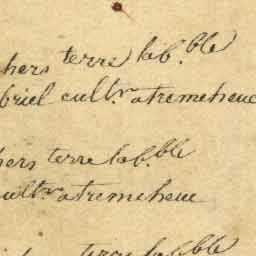 hers terre lab.ble
briel cult.r a tremeheuc
hers terre lab.ble
cult.r a tremeheuc
terre lab.ble